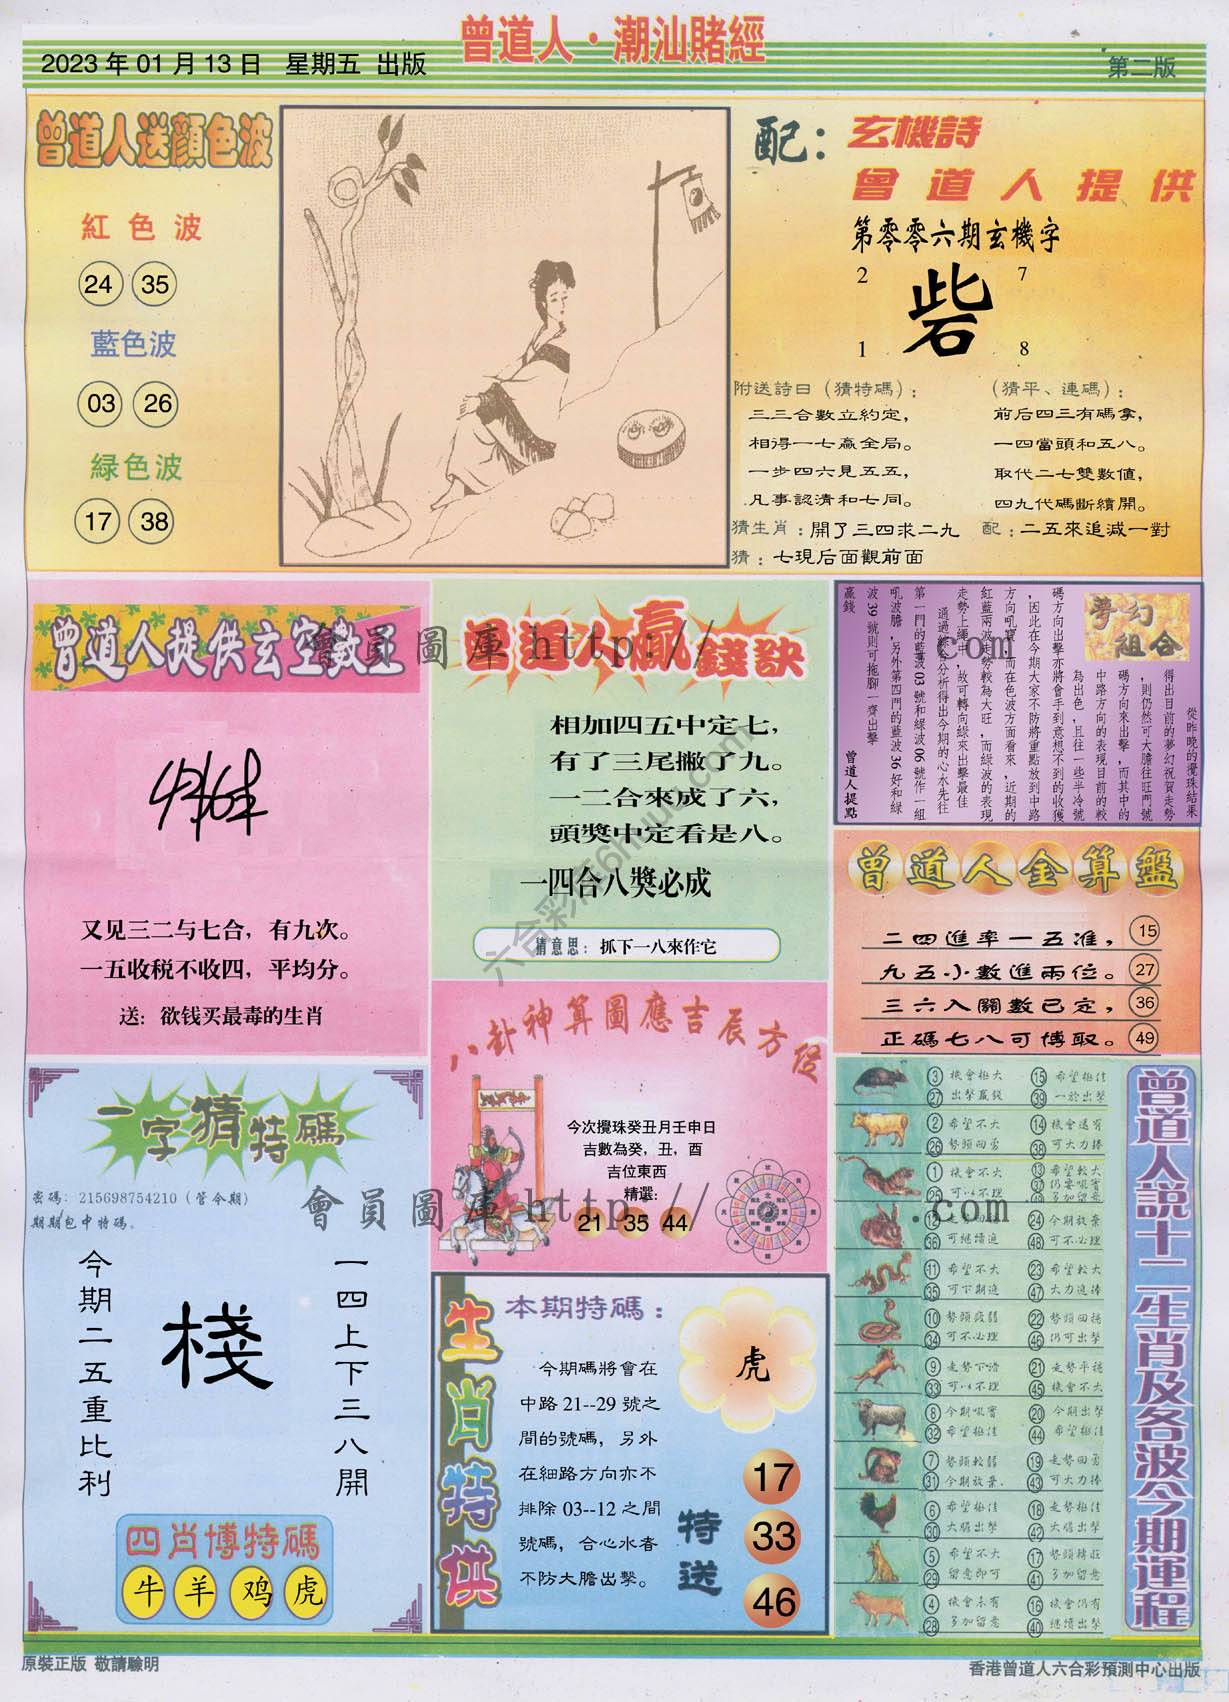 曾道人·潮汕賭經
2023 年 01 月 13 日 星期五 出版
第二版
曾道人送顏色波
紅色波
24 35
藍色波
03 26
綠色波
17 38
配：玄機詩
曾道人提供
第零零六期玄機字
2 7
砦
1 8
附送詩曰（猜特碼）：
三三合數立約定，
相得一七贏全局。
一步四六見五五，
凡事認清和七同。
（猜平、連碼）：
前后四三有碼拿，
一四當頭和五八。
取代二七雙數值，
四九代碼斷續開。
猜生肖：開了三四求二九
配：二五來追減一對
猜：七現后面觀前面
曾道人提供玄空數王
又见三二与七合，有九次。
一五收税不收四，平均分。
送：欲钱买最毒的生肖
曾道人贏錢訣
相加四五中定七，
有了三尾撇了九。
一二合來成了六，
頭獎中定看是八。
一四合八獎必成
猜意思：抓下一八來作它
夢幻組合
從昨晚的攪珠結果
得出目前的夢幻祝賀走勢
，則仍然可大膽往旺門號
碼方向來出擊，而其中的
中路方向的表現目前的較
為出色，且往一些半冷號
碼方向出擊亦將會手到意想不到的收獲
，因此在今期大家不防將重點放到中路
方向吼寶，而在色波方面看來，近期的
紅藍兩波走勢較為大旺，而綠波的表現
走勢上繩中，故可轉向綠來出擊最佳
通過綜合分析得出今期的心水先往
第一門的藍波 03 號和綠波 06 號作一組
吼波膽，另外第四門的藍波 36 好和綠
波 39 號則可拖腳一齊出擊
贏錢
曾道人提點
曾道人金算盤
二四進率一五准， 15
九五小數進兩位。 27
三六入關數已定， 36
正碼七八可博取。 49
八卦神算圖應吉辰方位
今次攪珠癸丑月壬申日
吉數為癸，丑，酉
吉位東西
精選：
21 35 44
一字猜特碼
密碼：215698754210（管今期）
期期包中特碼。
今期二五重比利
棧
一四上下三八開
四肖博特碼
牛 羊 鸡 虎
生肖特供
本期特碼：
虎
今期碼將會在
中路 21--29 號之
間的號碼，另外
在細路方向亦不
排除 03--12 之間
號碼，合心水者
不防大膽出擊。
特送
17
33
46
曾道人說十二生肖及各波今期運程
3 機會極大 15 希望極佳
27 出擊贏錢 39 一於出擊
2 希望不大 14 機會還有
26 勢頭回勇 38 可大力捧
1 機會不大 13 希望較大
可以不理
12 24 今期放棄
36 可繼續追 48 可不必理
11 希望不大 23 希望較大
35 可下期追 47 大力追捧
10 勢頭疲弱 22 勢頭回穩
34 可不必理 46 仍可出擊
9 走勢下滑 21 走勢平穩
33 可以不理 45 機會不大
8 今期吼寶 20 今期出擊
32 希望極佳 44 希望極佳
7 勢頭較弱 19 走勢回勇
31 今期放棄. 43 可大力捧
6 希望極佳 18 走勢極佳
30 大膽出擊 42 大膽出擊
5 希望不大 17 勢頭轉旺
29 留意即可 41 多加留意
4 機會未有 16 機會仍有
28 多加留意 40 繼續出擊
會員圖庫 http://
.com
會員圖庫 http://
.com
原裝正版 敬請驗明
香港曾道人六合彩預測中心出版